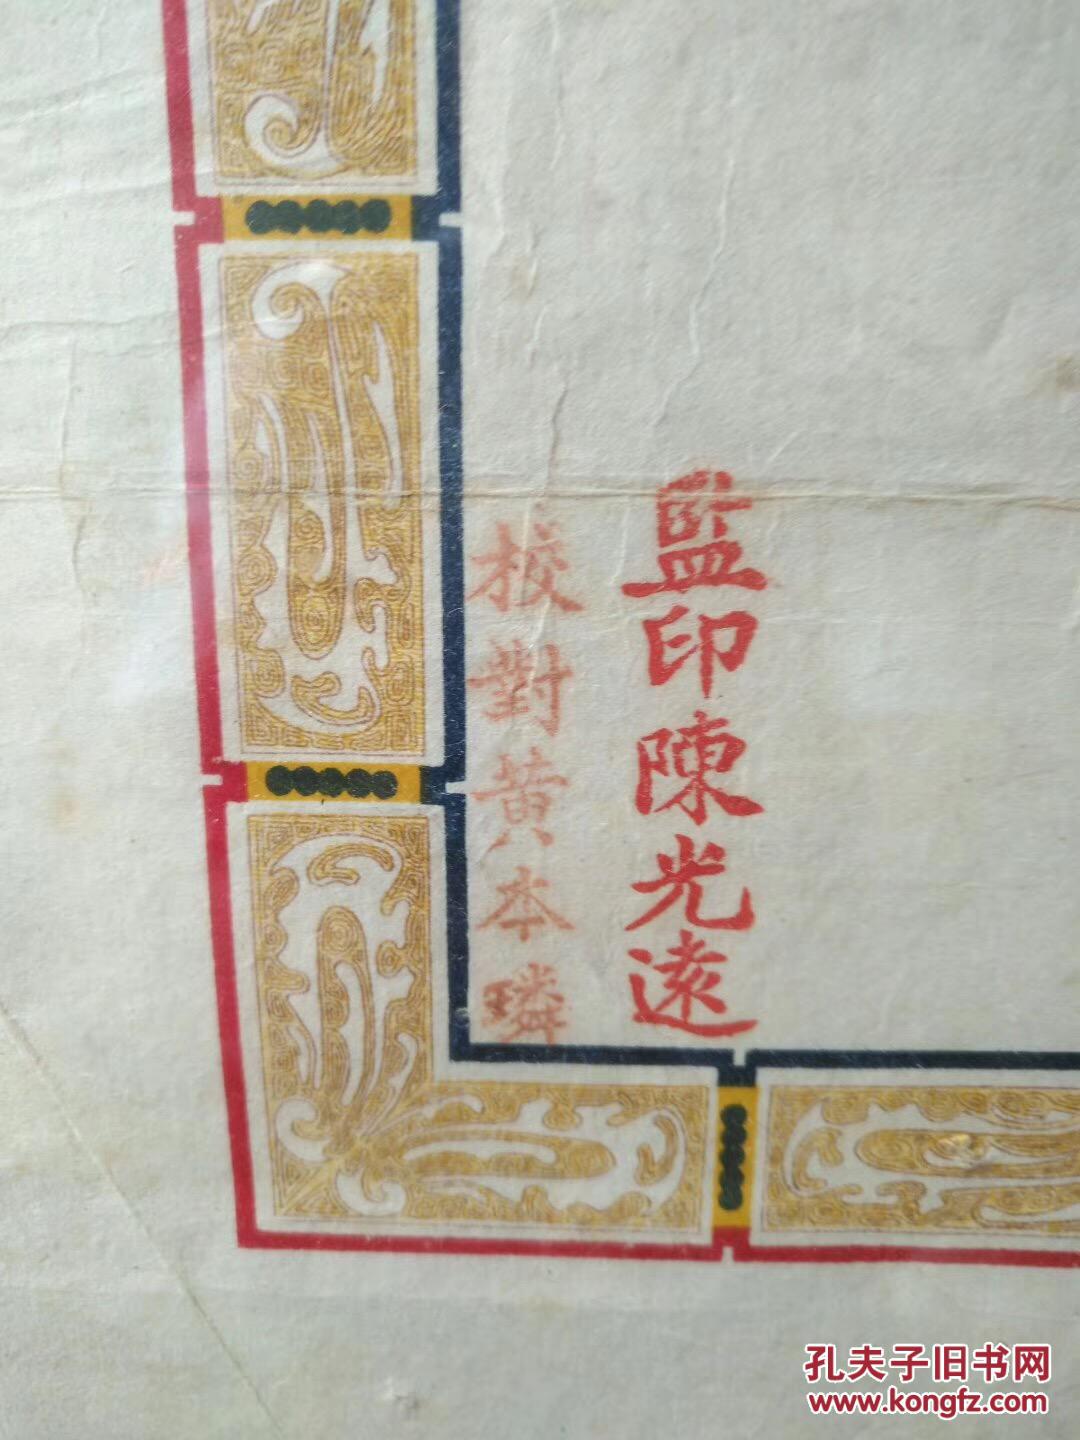 監印陳光遠
校對黃本璘
孔夫子旧书网
www.kongfz.com